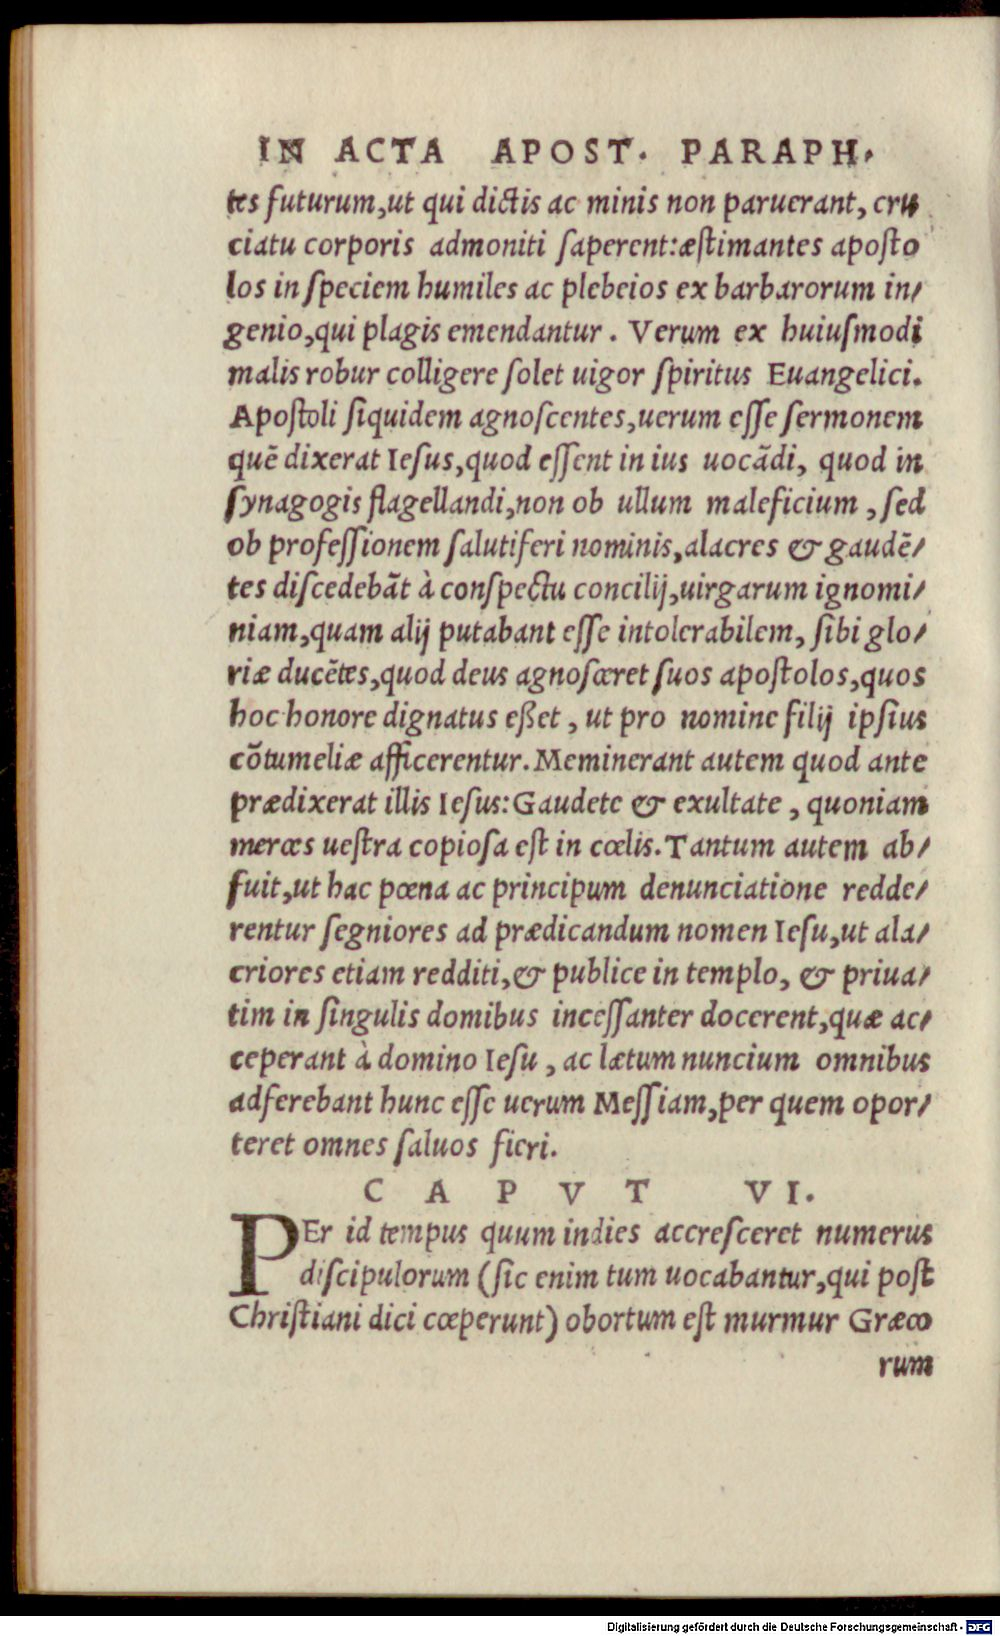 IN ACTA APOST. PARAPH.
tes futurum,ut qui dictis ac minis non paruerant, cru
ciatu corporis admoniti ſaperent:æſtimantes apoſto
los in ſpeciem humiles ac plebeios ex barbarorum in/
genio,qui plagis emendantur. Verum ex huiuſmodi
malis robur colligere ſolet uigor ſpiritus Euangelici.
Apoſtoli ſiquidem agnoſcentes,uerum eſſe ſermonem
quẽ dixerat Ieſus,quod eſſent in ius uocãdi, quod in
ſynagogis flagellandi,non ob ullum maleficium, ſed
ob profeſſionem ſalutiferi nominis,alacres & gaudẽ/
tes diſcedebãt à conſpectu concilij,uirgarum ignomi/
niam,quam alij putabant eſſe intolerabilem, ſibi glo/
riæ ducẽtes,quod deus agnoſceret ſuos apoſtolos,quos
hoc honore dignatus eßet, ut pro nomine filij ipſius
cõtumeliæ afficerentur. Meminerant autem quod ante
prædixerat illis Ieſus: Gaudete & exultate, quoniam
merces ueſtra copioſa eſt in cœlis. Tantum autem ab/
fuit,ut hac pœna ac principum denunciatione redde/
rentur ſegniores ad prædicandum nomen Ieſu,ut ala/
criores etiam redditi,& publice in templo, & priua/
tim in ſingulis domibus inceſſanter docerent,quæ ac/
ceperant à domino Ieſu, ac lætum nuncium omnibus
adferebant hunc eſſe uerum Meſſiam,per quem opor/
teret omnes ſaluos fieri.
CAPVT VI.
PEr id tempus quum indies accreſceret numerus
diſcipulorum (ſic enim tum uocabantur,qui poſt
Chriſtiani dici cœperunt) obortum eſt murmur Græco
rum
Digitalisierung gefördert durch die Deutsche Forschungsgemeinschaft - DFG